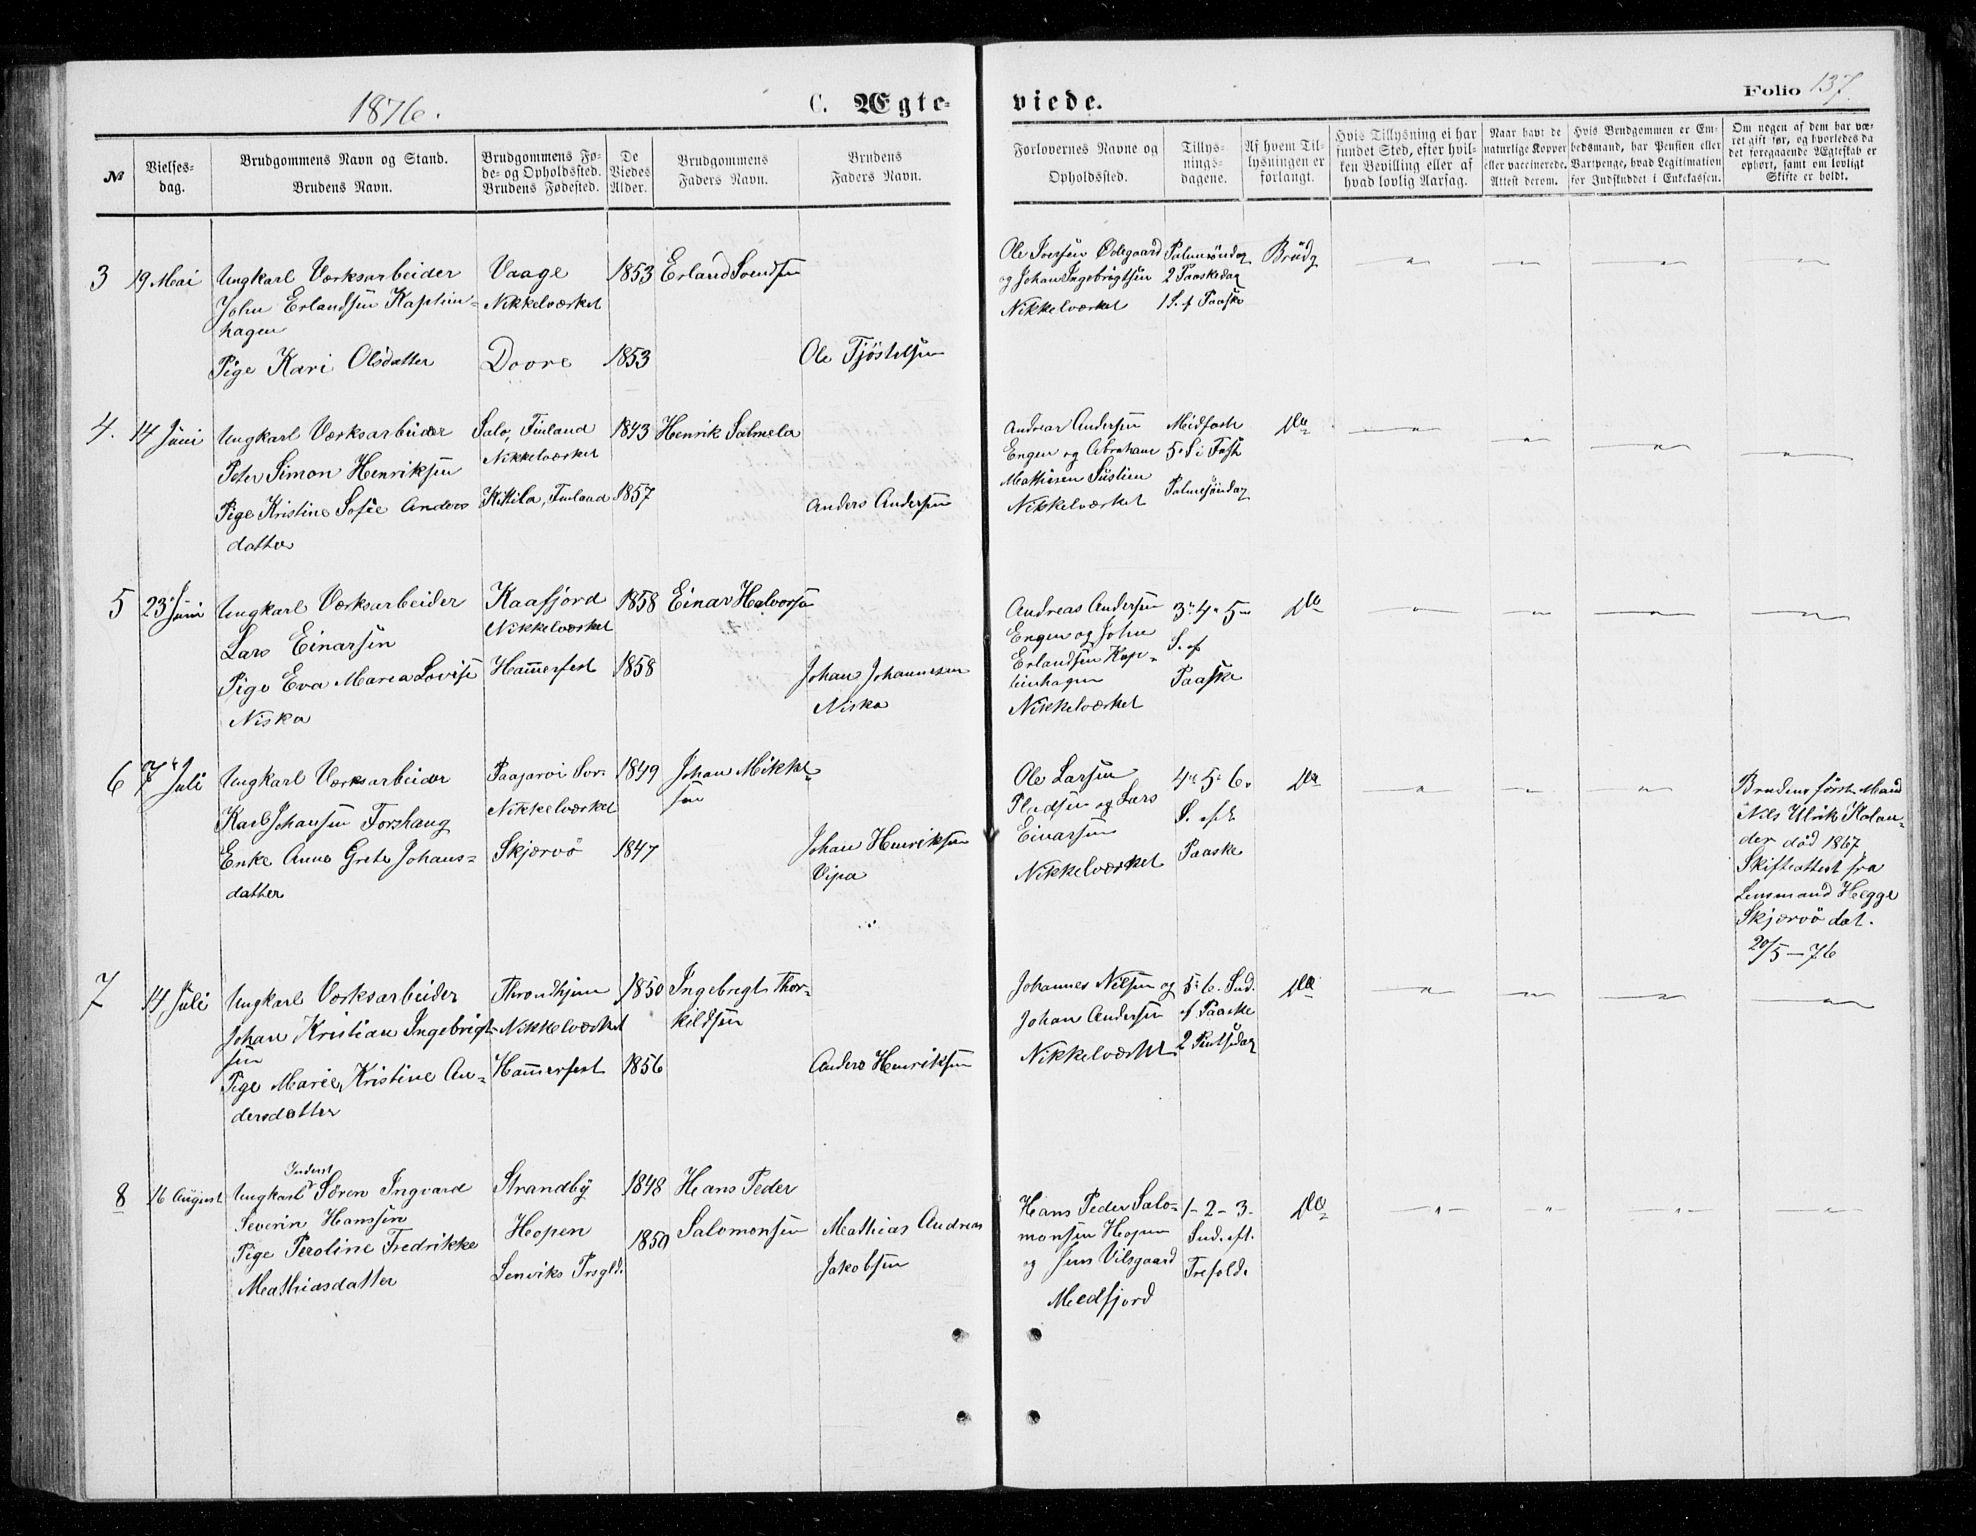 1876.
C. Ægte-
viede.
Folio 137.
№
Vielses-
dag.
Brudgommens Navn og Stand.
Brudens Navn.
Brudgommens Fø-
de- og Opholdssted.
Brudens Fødested.
De
Viedes
Alder.
Brudgommens
Faders Navn.
Brudens
Faders Navn.
Forlovernes Navne og
Opholdssted.
Tillys-
nings-
dagene.
Af hvem Til-
lysningen er
forlangt.
Hvis Tillysning ei har
fundet Sted, efter hvil-
ken Bevilling eller af
hvad lovlig Aarsag.
Naar havt de
naturlige Kopper
eller vaccinerede.
Attest derom.
Hvis Brudgommen er Em-
bedsmand, har Pension eller
Vartpenge, hvad Legitimation
for Indskuddet i Enkekassen.
Om nogen af dem har væ-
ret gift før, og hvorledes da
det foregaaende Ægteskab er
ophørt, samt om lovligt
Skifte er holdt.
3
19 Mai
Ungkarl Værksarbeider
John Erlandsen Kaptein-
hagen
Pige Kari Olsdatter
Vaage
Nikkelværket
Dovre
1853
1853
Erland Svendsen
Ole Tjøstelsen
Ole Iversen Ødegaard
og Johan Ingebrigtsen
Nikkelværket
Palmesöndag
2 Paaskedag
1 S. f Paaske
Brüdg
4.
14 Juni
Ungkarl Værksarbeider
Peter Simon Henriksen
Pige Kristine Sofie Anders
datter
Salo, Finland
Nikkelværket
Kittila, Finland
1843
1857
Henrik Salmela
Anders Andersen
Andreas Andersen
Engen og Abraham
Mathisen Sustien
Nikkelværket
Midfaste
5 S i Faste
Palmesöndag
Do
5
23 Juni
Ungkarl Værksarbeider
Lars Einarsen
Pige Eva Maria Lovise
Niska
Kaafjord
Nikkelværket
Hammerfest
1858
1858
Einar Halvorsen
Johan Johannesen
Niska
Andreas Andersen
Engen og John
Erlandsen Kap-
teinhagen
Nikkelværket
3. 4. 5.
S. ef
Paaske
Do
6
7 Juli
Ungkarl Værksarbeider
Karl Johansen Forshaug
Enke Anne Grete Johans-
datter
Nikkelværket
Skjærvö
1849
1847
Johan Mikkel-
sen
Johan Henriksen
Vipa
Ole Larsen
Pladsen og Lars
Einarsen
Nikkelværket
4. 5. 6.
S. eft
Paaske
Do
Brudens förste Mand
Nils Ulrik Kolan-
der död 1867.
Skifteattest fra
Lensmand Hegge
Skjærvö dat.
20/5-76
7
14 Juli
Ungkarl Værksarbeider
Johan Kristian Ingebrigt-
sen
Pige Marie Kristine An-
dersdatter
Throndhjem
Nikkelværket
Hammerfest
1850
1856
Ingebregt Thor-
kildsen
Anders Henriksen
Johannes Nilsen og
Johan Andersen
Nikkelværket
5. 6. Sud.
f Paaske
2 Pintsedag
Do
8
16 August
Inderst
Ungkarl Sören Ingvard
Severin Hanssen
Pige Peroline Fredrikke
Mathiasdatter
Strandby
Hopen
Lenviks Prsgld.
1848
1850
Hans Peder
Salomonsen
Mathias Andreas
Jakobsen
Hans Peder Salo-
monsen Hopen
og Jens Vilsgaard
Medfjord
1-2-3-
Sud. eft.
Trefold.
Do